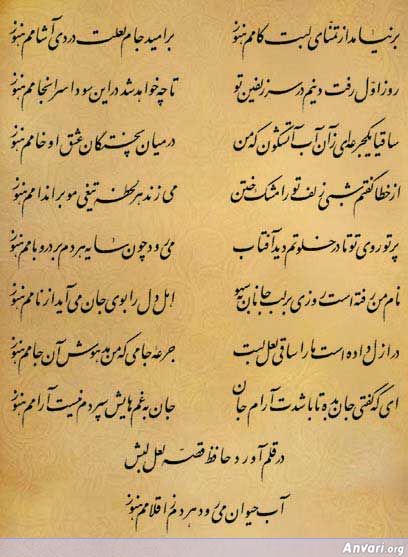 برنیامد از تمنای لبت کامم هنوز بر امید جام لعلت دردی آشامم هنوز
روز اول رفت دینم در سر زلفین تو تا چه خواهد شد در این سودا سرانجامم هنوز
ساقیا یکجرعه ای زآن آب آتشگون که من در میان پختگان عشق او خامم هنوز
از خطا گفتم شبی زلف تو را مشک ختن می زند هر لحظه تیغی مو بر اندامم هنوز
پرتو روی تو تا در خلوتم دید آفتاب می رود چون سایه هر دم بر در و بامم هنوز
نام من رفته است روزی بر لب جانان به سهو اهل دل را بوی جان می آید از نامم هنوز
در ازل داده است ما را ساقی لعل لبت جرعه جامی که من مدهوش آن جامم هنوز
ای که گفتی جان بده تا باشدت آرام جان جان به غم هایش سپردم نیست آرامم هنوز
در قلم آورد حافظ قصه لعل لبش
آب حیوان می رود هر دم ز اقلامم هنوز
Anvari.org